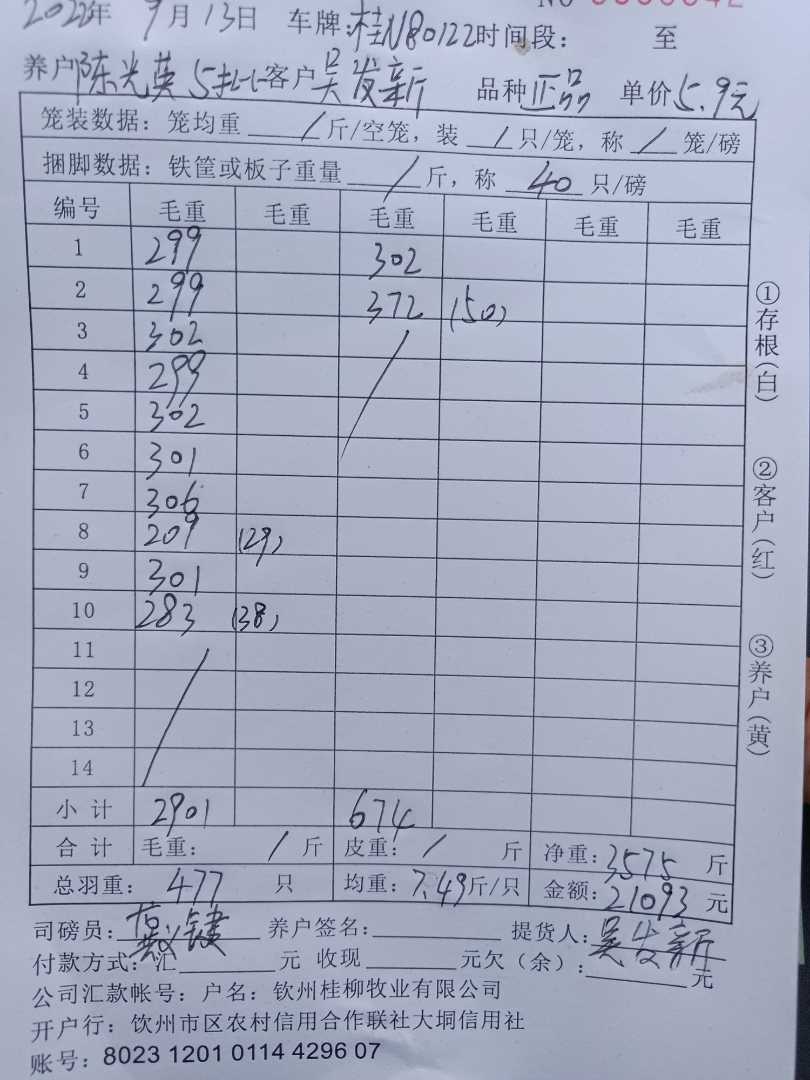 NO 0000042
2022年 9月13日 车牌:桂N80122时间段: 至
养户陈光英 5批 客户吴发新 品种正品 单价5.9元
笼装数据：笼均重 / 斤/空笼，装 / 只/笼，称 / 笼/磅
捆脚数据：铁筐或板子重量 / 斤，称 40 只/磅
编号 毛重 毛重 毛重 毛重 毛重 毛重
1 299 302
2 299 372 (50)
3 302
4 299
5 302
6 301
7 306
8 209 (29)
9 301
10 283 (38)
11
12
13
14
小计 2901 674
合计 毛重: / 斤 皮重: / 斤 净重:3575 斤
总羽重: 477 只 均重:7.49斤/只 金额:21093 元
司磅员: 养户签名: 提货人:吴发新
付款方式:汇 元 收现 元欠（余）: 元
公司汇款帐号：户名：钦州桂柳牧业有限公司
开户行：钦州市区农村信用合作联社大垌信用社
账号：8023 1201 0114 4296 07
①存根(白) ②客户(红) ③养户(黄)